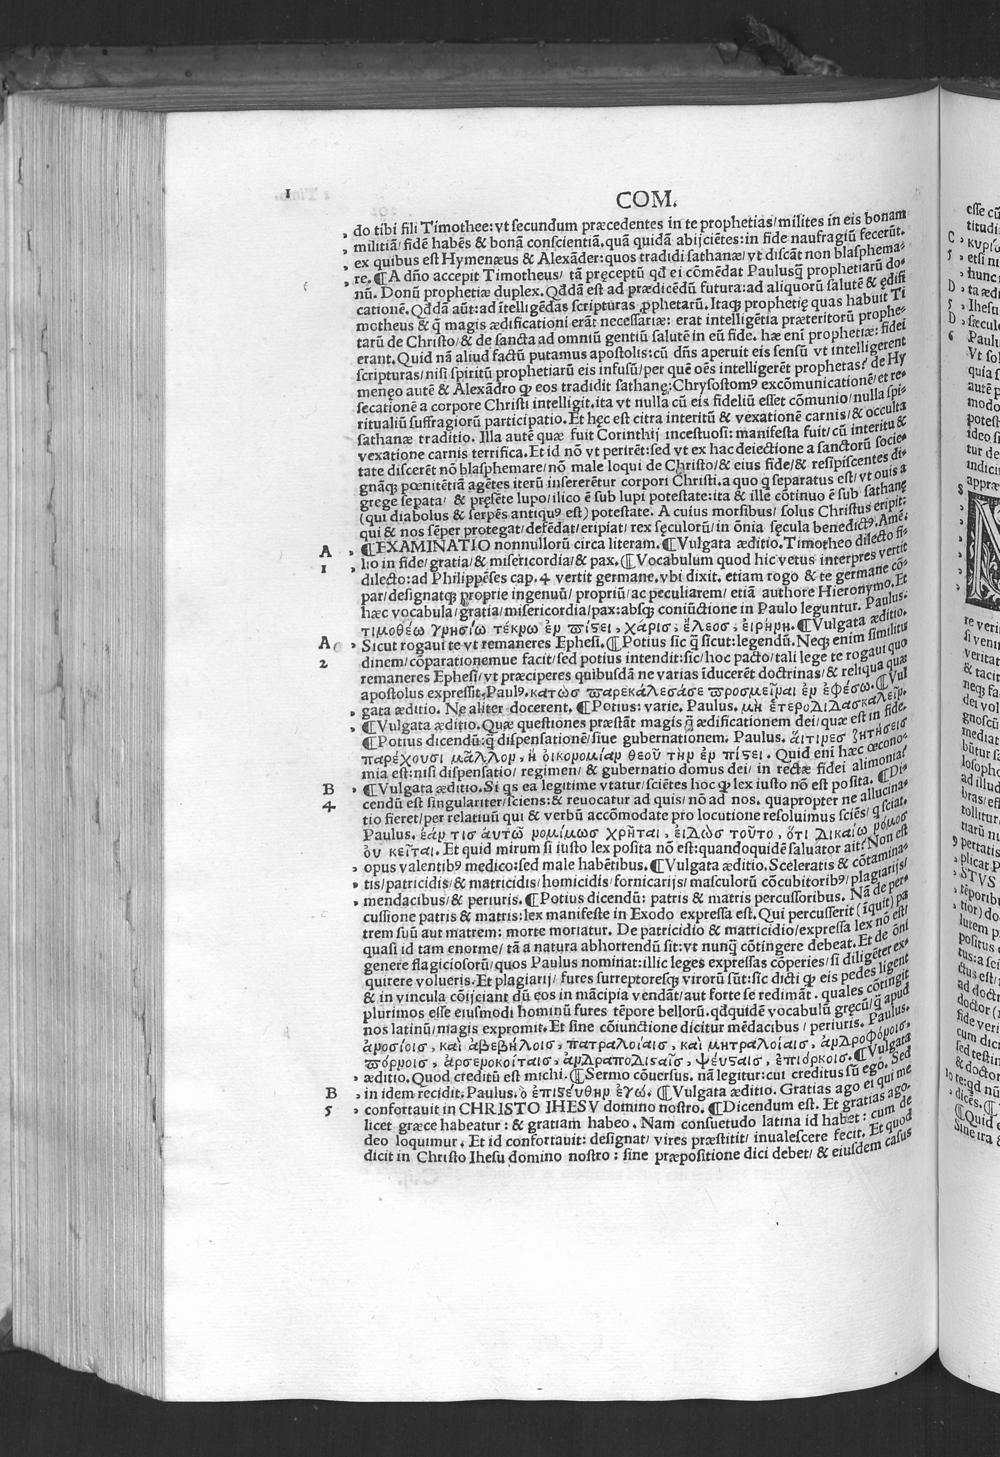 1
COM.
, do tibi fili Timothee: vt secundum præcedentes in te prophetias/ milites in eis bonam
, militiã/ fidẽ habẽs & bonã conscientiã, quã quidã abijciẽtes: in fide naufragiũ fecerũt.
, ex quibus est Hymenæus & Alexãder: quos tradidi sathanæ/ vt discãt non blasphema-
, re. ¶A dño accepit Timotheus/ tã pręceptũ qđ ei cõmẽdat Paulus q̃ prophetiarũ do-
nũ. Donũ prophetiæ duplex. Qđdã est ad prædicẽdũ futura: ad aliquorũ salutẽ & ędifi
cationẽ. Qđdã aũt: ad ĩtelligẽdas scripturas ꝓphetarũ. Itaqꝫ prophetię quas habuit Ti
motheus & q̃ magis ædificationi erãt necessariæ: erat intelligẽtia præteritorũ prophe-
tarũ de Christo/ & de sancta ad omniũ gentiũ salutẽ in eũ fide. hæ enĩ prophetiæ: fidei
erant. Quid nã aliud factũ putamus apostolis: cũ dñs aperuit eis sensũ vt intelligerent
scripturas/ nisi spiritũ prophetiarũ eis infusũ/ per quẽ oẽs intelligerẽt prophetas? de Hy
menęo autẽ & Alexãdro qꝙ eos tradidit sathanę: Chrysostomꝰ excõmunicationẽ/ et re-
secationẽ a corpore Christi intelligit. ita vt nulla cũ eis fideliũ esset cõmunio/ nulla spi-
ritualiũ suffragiorũ participatio. Et hęc est citra interitũ & vexationẽ carnis/ & occulta
sathanæ traditio. Illa autẽ quæ fuit Corinthij incestuosi: manifesta fuit/ cũ interitu &
vexatione carnis terrifica. Et id nõ vt perirẽt: sed vt ex hac deiectione a sanctorũ socie-
tate discerẽt nõ blasphemare/ nõ male loqui de Christo/ & eius fide/ & resipiscentes di-
gnãqꝫ pœnitẽtiã agẽtes iterũ insererẽtur corpori Christi. a quo q̃ separatus est/ vt ouis a
grege sepata/ & pręsẽte lupo/ ilico ẽ sub lupi potestate: ita & ille cõtinuo ẽ sub sathanę
(qui diabolus & serpẽs antiquꝰ est) potestate. A cuius morsibus/ solus Christus eripit:
qui & nos sẽper protegat/ defẽdat/ eripiat/ rex sęculorũ/ in õnia sęcula benedictꝰ. Amẽ.
A , ¶EXAMINATIO nonnullorũ circa literam. ¶Vulgata æditio. Timotheo dilecto fi-
1 , lio in fide/ gratia/ & misericordia/ & pax. ¶Vocabulum quod hic vetus interpres vertit
dilecto: ad Philippẽses cap. 4 vertit germane. vbi dixit. etiam rogo & te germane cõ-
par/ designatqꝫ proprie ingenuũ/ propriũ/ ac peculiarem/ etiã authore Hieronymo. Et
hæc vocabula/ gratia/ misericordia/ pax: absqꝫ coniũctione in Paulo leguntur. Paulus.
τιμοθέω γνησίω τέκνω ἐν πίστει, χάρισ, ἔλεοσ, εἰρήνη. ¶Vulgata æditio.
A , Sicut rogaui te vt remaneres Ephesi. ¶Potius sic q̃ sicut: legendũ. Neqꝫ enim similitu
2 dinem/ cõparationemue facit/ sed potius intendit: sic/ hoc pacto/ tali lege te rogaui quo
remaneres Ephesi/ vt præciperes quibusdã ne varias ĩducerẽt doctrinas/ & reliqua quæ
apostolus expressit. Paulꝰ. κατὼσ παρεκάλεσάσε προσμεῖναι ἐν ἐφέσω. ¶Vul
, gata æditio. Ne aliter docerent. ¶Potius: varie. Paulus. μὴ ἑτεροδιδασκαλεῖν.
, ¶Vulgata æditio. Quæ questiones præstãt magis q̃ ædificationem dei/ quæ est in fide.
¶Potius dicendũ: q̃ dispensationẽ/ siue gubernationem. Paulus. ἅιτινεσ ζητήσεισ
παρέχουσι μᾶλλον, ἢ ὀικονομίαν θεοῦ τὴν ἐν πίστει. Quid enĩ hæc œcono-
mia est: nisi dispensatio/ regimen/ & gubernatio domus dei/ in rectæ fidei alimonia?
B , ¶Vulgata æditio. Si qs ea legitime vtatur/ sciẽtes hoc qꝙ lex iusto nõ est posita. ¶Di-
4 cendũ est singulariter/ sciens: & reuocatur ad quis/ nõ ad nos. quapropter ne allucina-
tio fieret/ per relatiuũ qui & verbũ accõmodate pro locutione resoluimus sciẽs/ q̃ sciat.
Paulus. ἐάν τισ ἀυτῶ νομίμωσ χρῆται, ἐιδὼσ τοῦτο, ὅτι δικαίω νόμοσ
ὀυ κεῖται. Et quid mirum si iusto lex posita nõ est: quandoquidẽ saluator ait? Non est
, opus valentibꝰ medico: sed male habẽtibus. ¶Vulgata æditio. Sceleratis & cõtamina-
, tis/ patricidis/ & matricidis/ homicidis/ fornicarijs/ masculorũ cõcubitoribꝰ/ plagiarijs/
, mendacibus/ & periuris. ¶Potius dicendũ: patris & matris percussoribus. Nã de per-
cussione patris & matris: lex manifeste in Exodo expressa est. Qui percusserit (ĩquit) pa
trem suũ aut matrem: morte moriatur. De patricidio & matricidio/ expressa lex nõ est/
quasi id tam enorme/ tã a natura abhortendũ sit: vt nunq̃ cõtingere debeat. Et de õni
genere flagiciosorũ/ quos Paulus nominat: illic leges expressas cõperies/ si diligẽter ex-
quirere volueris. Et plagiarij/ fures surreptoresqꝫ virorũ sũt: sic dicti qꝙ eis pedes ligent
& in vincula cõijciant dũ eos in mãcipia vendãt/ aut forte se redimãt. quales cõtingit
plurimos esse eiusmodi hominũ fures tẽpore bellorũ. qđquidẽ vocabulũ gręcũ/ q̃ apud
nos latinũ/ magis expromit. Et sine cõiunctione dicitur mẽdacibus/ periuris. Paulus.
ἀνοσίοισ, καὶ ἀβεβήλοισ, πατραλοίαισ, καὶ μητραλοίαισ, ἀνδροφόνοισ.
πόρνοισ, ἀρσενοκοίταισ, ἀνδραποδισαῖσ, ψέυσαισ, ἐπιόρκοισ. ¶Vulgata
, æditio. Quod creditũ est michi. ¶Sermo cõuersus. nã legitur: cui creditus sũ ego. Sed
B , in idem recidit. Paulus. ὃ ἐπιστέυθην ἐγώ. ¶Vulgata æditio. Gratias ago ei qui me
5 , confortauit in CHRISTO IHESV domino nostro. ¶Dicendum est. Et gratias ago.
licet græce habeatur: & gratiam habeo. Nam consuetudo latina id habet: cum de
deo loquimur. Et id confortauit: designat/ vires præstitit/ inualescere fecit. Et quod
dicit in Christo Ihesu domino nostro: sine præpositione dici debet/ & eiusdem casus